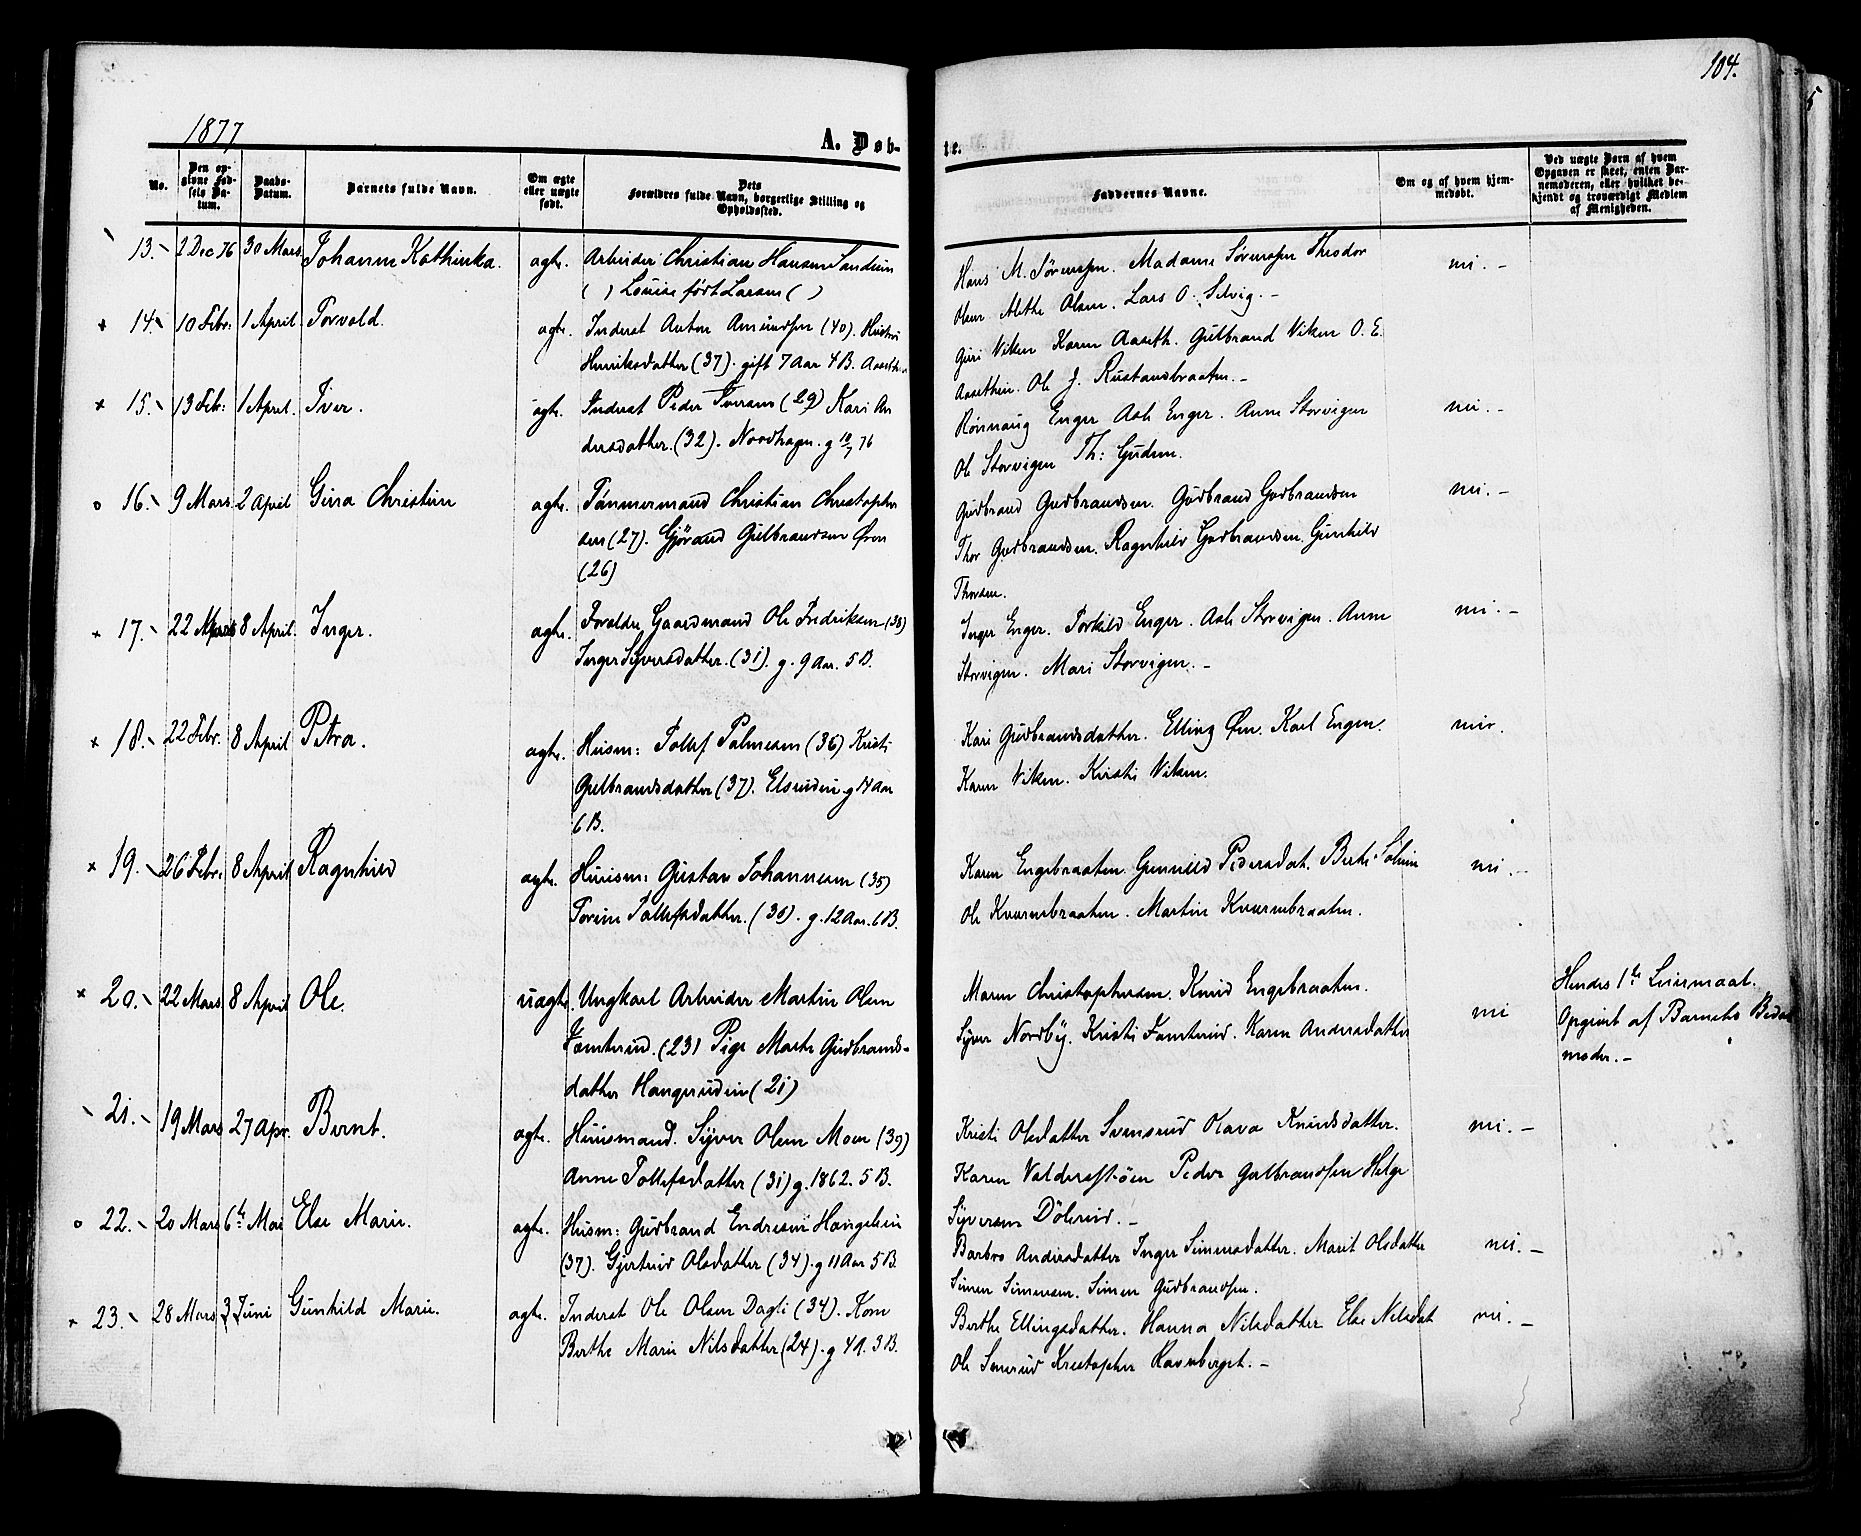 104.
5
1877
A. Døb-
te.
No.
Den op-
givne Fød-
sels Da-
tum.
Daabs-
Datum.
Barnets fulde Navn.
Om ægte
eller uægte
født.
Dets
Forældres fulde Navn, borgerlige Stilling og
Opholdssted.
Faddernes Navne.
Om og af hvem hjem-
medøbt.
Ved uægte Børn af hvem
Opgaven er skeet, enten Bar-
nemoderen, eller hvilket be-
kjendt og troværdigt Medlem
af Menigheden.
13. 2 Dec 76 30 Mars Johanne Kathinka. ægte. Arbeider Christian Hansen Sandeien
( ) Louise født Larsen ( )
Hans M. Sørensen. Madame Sørensen Theodor
Olsen Alethe Olsen. Lars O. Selvig. -
nei. -
14. 10 Febr. 1 April Torvald. ægte. Inderst Anton Amundsen (40). Hustru
Henriksdatter (37). gift 7 Aar 4 B.
Guri Viken Karen Aaseth. Gulbrand Viken O. E.
Aasetheie. Ole J. Rustandbraaten. -
15. 13 Feb: 1 April. Iver. ægte. Inderst Peder Iversen (29) Kari An
dersdatter. (32). Nordhagen. g 18/7 76
Rønnaug Enger Asle Enger. Anne Storvigen
Ole Storvigen Th: Gudem.
nei. -
16. 9 Mars 2 April Gina Christine ægte. Tømmermand Christian Christopher
sen (27). Gjørand Gulbrandsen Øren
(26)
Gudbrand Gudbrandsen. Gudbrand Gudbrandsen
Thor Gudbrandsen. Ragnhild Gudbrandsen. Gunhild
Thorsen.
nei. -
17. 22 Mars 8 April. Inger. ægte. Forældre Gaardmand Ole Fredriksen (38)
Inger Syversdatter. (31). g. 9 Aar. 5 B.
Inger Enger. Torkild Enger. Asle Storvigen. Anne
Storvigen. Mari Storvigen. -
nei. -
18. 22 Febr. 8 April Petra. ægte. Husm: Tollef Palmesen (36) Kristi
Gulbrandsdatter (37). Elsrudeie. g 14 Aar
6 B.
Kari Gudbrandsdatter. Elling Øen. Karl Engen.
Karen Viken. Kirsti Viken.
nei.
19. 26 Febr. 8 April Ragnhild ægte. Huusm: Gustav Johannesen (35)
Torine Tollefsdatter. (36). g. 12 Aar. 6 B.
Karen Engebraaten. Gunnild Pedersdat. Berthe Solum
Ole Kvernbraaten. Martin Kvernbraaten.
nei. -
20. 22 Mars 8 April Ole. uægte. Ungkarl Arbeider Martin Olsen
Jomterud. (23) Pige Marte Gudbrands-
datter Haugerudeie (21)
Maren Christophersen. Knud Engebraaten.
Syver Nordby. Kristi Jomterud. Karen Andersdatter
nei
Hendes 1te Leiermaal.
Opgivet af Barnets Bedste
moder. -
21. 19 Mars 27 Apr. Bernt. ægte. Huusmand. Syver Olsen Moen (39)
Anne Tollefsdatter (31) g. 1862. 5 B.
Kristi Olsdatter Svensrud Olava Knudsdatter.
Karen Valdersstøen Peder Gulbrandsen Helge
Syversen Dølerud. -
nei. -
22. 20 Mars 6te Mai Else Marie. ægte. Husm: Gudbrand Endresen Haugeleie
(37). Gjertrud Olsdatter (34). g 11 Aar 5 B.
Barbro Andersdatter Inger Simensdatter. Marit Olsdatter
Simen Simensen. Simen Gudbrandsen.
nei. -
23. 28 Mars 3 Juni Gunhild Marie. ægte. Inderst Ole Olsen Dagli (34). Kone
Berthe Marie Nilsdatter (24). g 4 A. 3 B.
Berthe Ellingsdatter. Hanna Nilsdatter Else Nilsdat
Ole Semrud Kristopher Ravnberget. -
nei. -